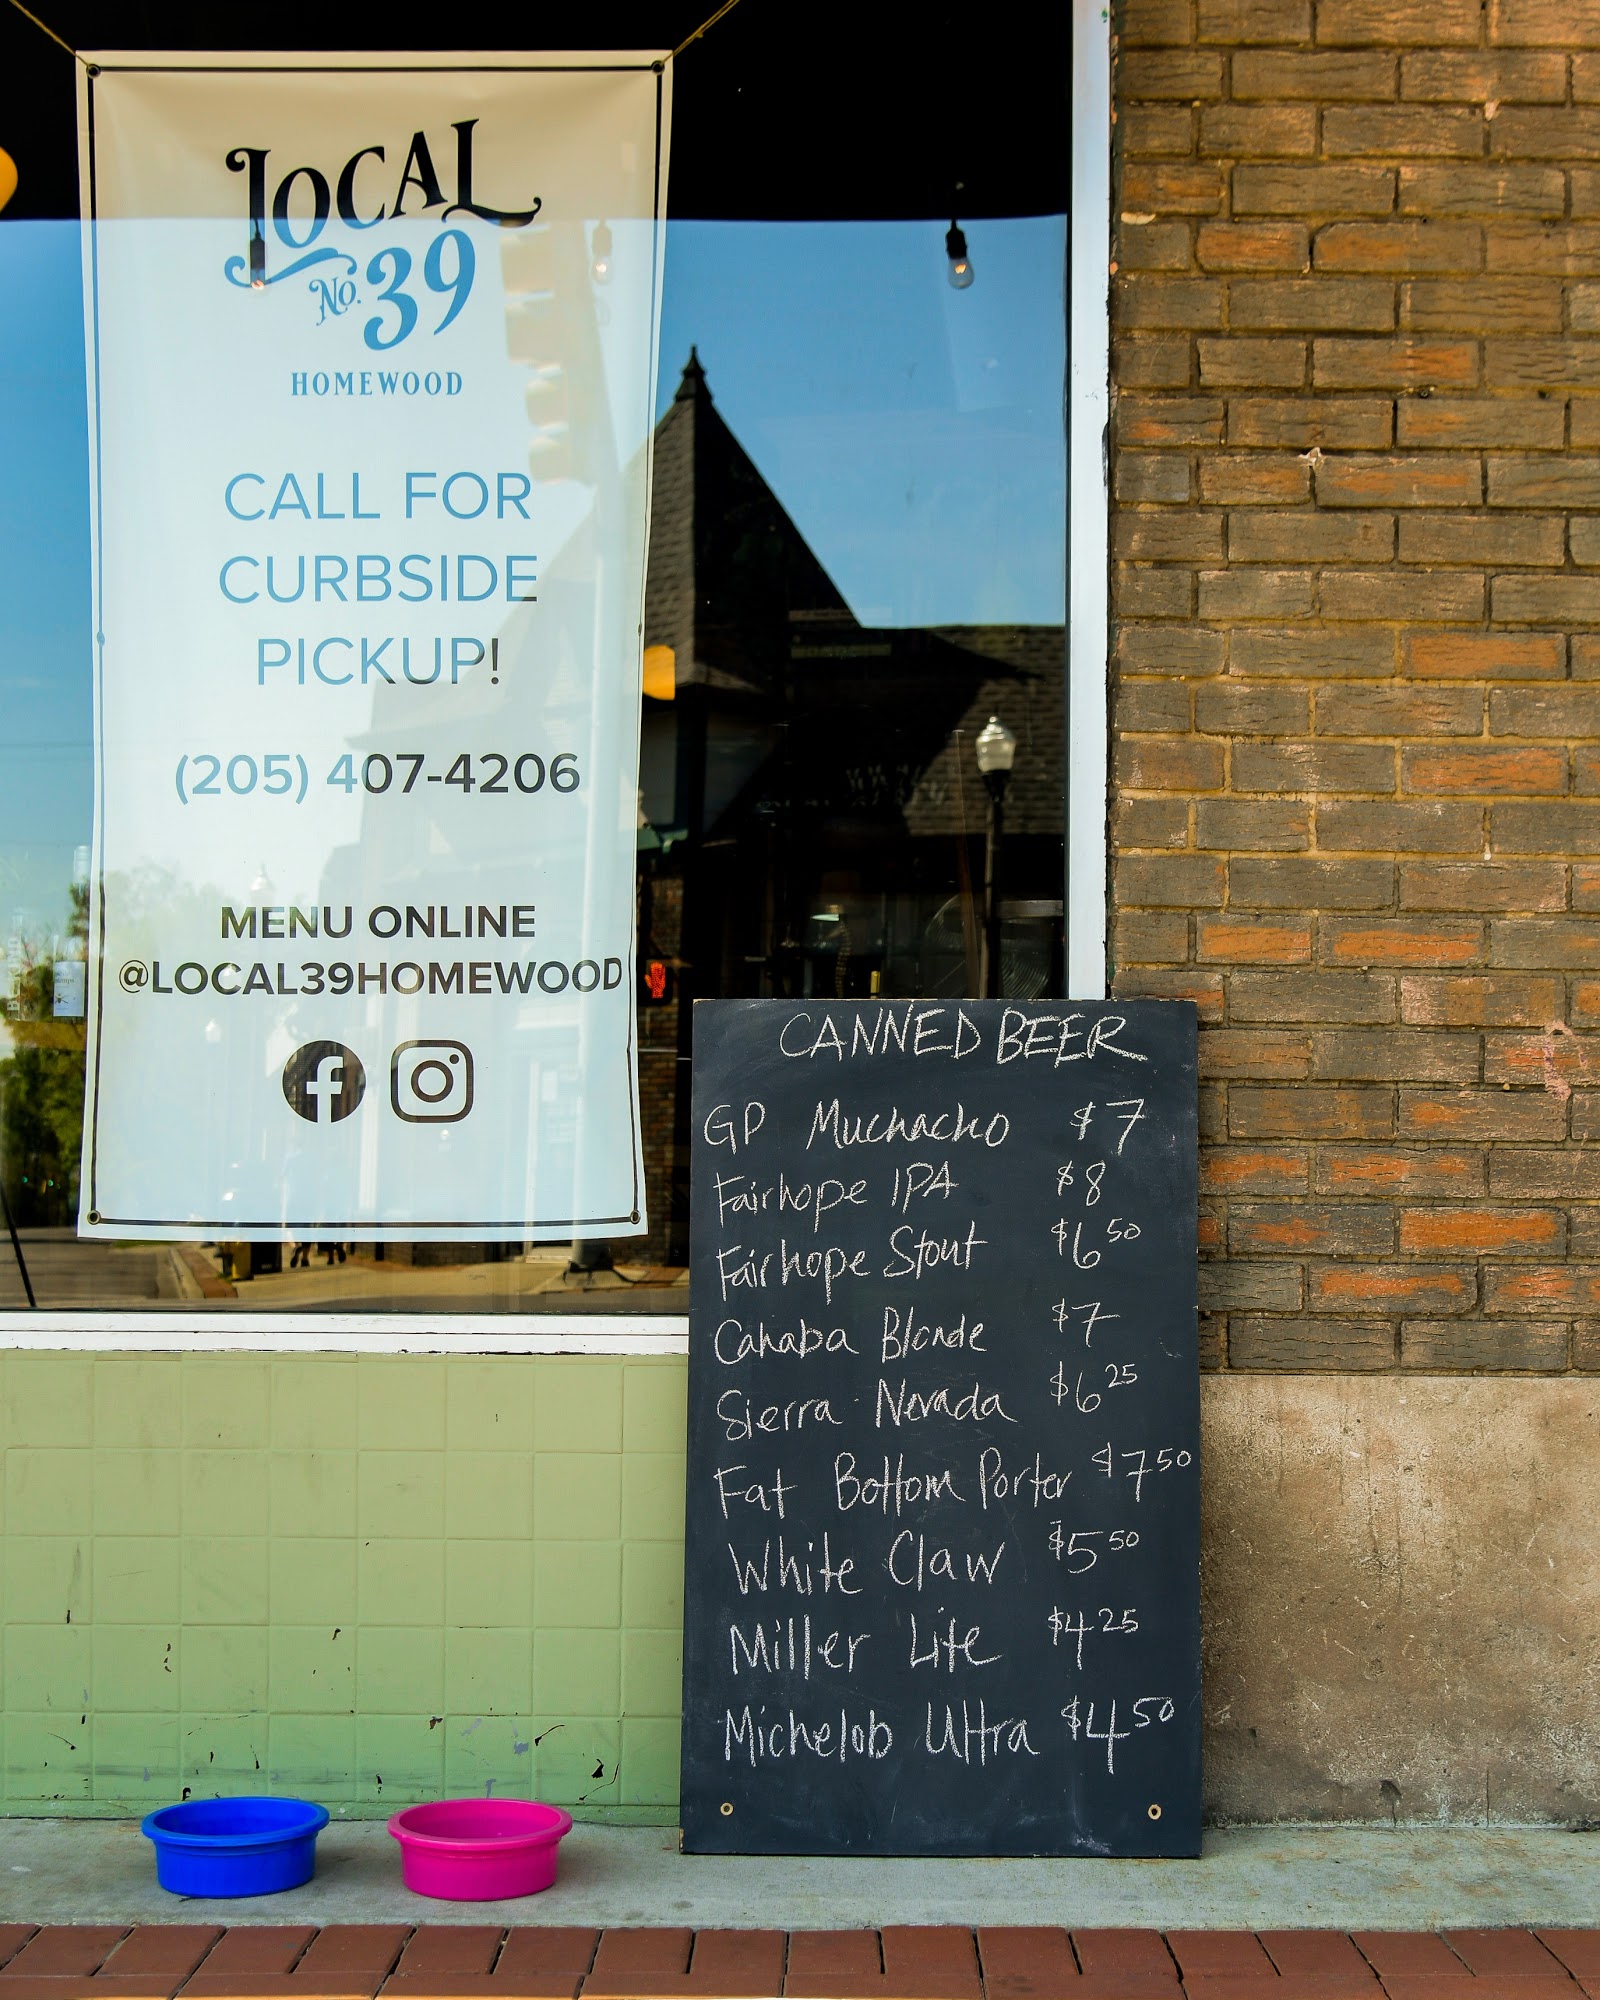 LOCAL
No. 39
HOMEWOOD
CALL FOR
CURBSIDE
PICKUP!
(205) 407-4206
MENU ONLINE
@LOCAL39HOMEWOOD
CANNED BEER
GP Muchacho $7
Fairhope IPA $8
Fairhope Stout $6 50
Cahaba Blonde $7
Sierra Nevada $6 25
Fat Bottom Porter $7 50
White Claw $5 50
Miller Lite $4 25
Michelob Ultra $4 50